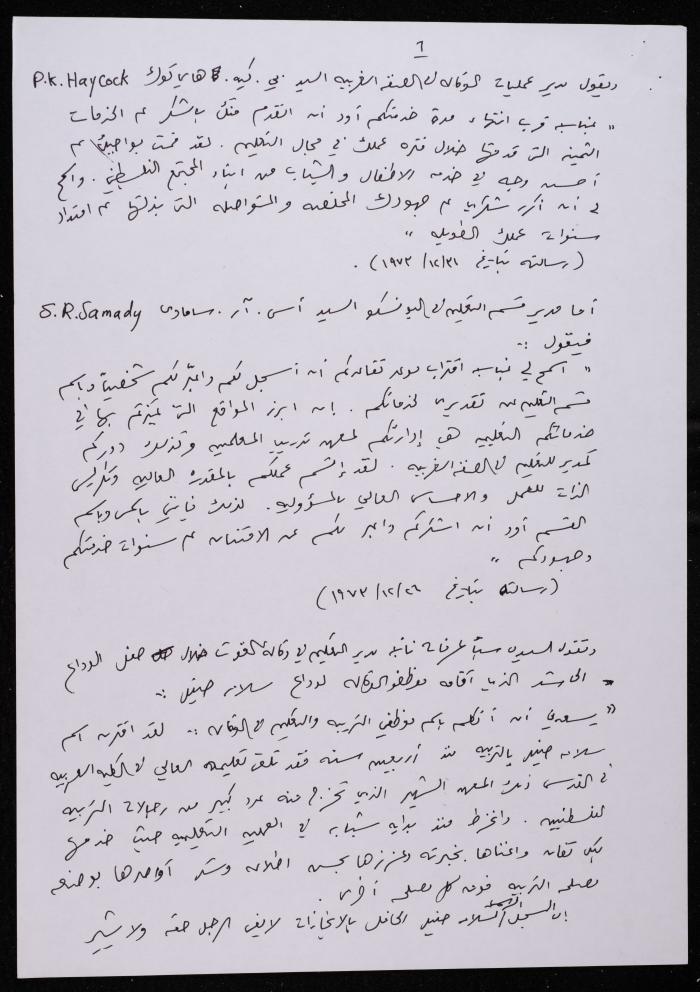 ٦
ويقول مدير عمليات الوكالة في الضفة الغربية السيد بي. كيه. هايكوك P.K. Haycock
" بمناسبة قرب انتهاء مدة خدمتكم أود أن أتقدم منك بالشكر على الخدمات
الثمينة التي قدمتها خلال فترة عملك في مجال التعليم. لقد قمت بواجبك على
أحسن وجه في خدمة الاطفال والشباب من ابناء المجتمع الفلسطيني. واسمح
لي أن أكرر شكري على جهودك المخلصة والمتواصلة التي بذلتها على امتداد
سنوات عملك الطويلة "
(رسالته بتاريخ ٣١/١٢/١٩٧٣).
أما مدير قسم التعليم في اليونسكو السيد أس. آر. سامادي S.R. Samady
فيقول :-
" اسمح لي بمناسبة اقتراب موعد تقاعدكم أن أسجل لكم وأعبر لكم شخصياً وباسم
قسم التعليم عن تقديري لخدماتكم. إن ابرز المواقع التي تميزتم بها في
خدماتكم التعليمية هي إدارتكم لمعهد تدريب المعلمين وكذلك دوركم
كمدير للتعليم في الضفة الغربية. لقد إتسم عملكم بالمقدرة العالية وتكريس
الذات للعمل والاحساس العالي بالمسؤولية. لذلك فإنني باسمي وباسم
القسم أود أن اشكركم وأعبر لكم عن الامتنان على سنوات خدمتكم
وجهودكم "
(رسالته بتاريخ ٢٦/١٢/١٩٧٣)
وتقول السيدة عرفات نائبة مدير التعليم في وكالة الغوث خلال حفل الوداع
الحاشد الذي أقامه موظفو الوكالة لوداع سلامة خليل :-
" يسعدني أن أتكلم باسم موظفي التربية والتعليم في الوكالة :- لقد اقترن اسم
سلامة خليل بالتربية منذ أربعين سنة فقد تلقى تعليمه العالي في الكلية العربية
في القدس ذلك المعهد الشهير الذي تخرج منه عدد كبير من رجالات التربية
الفلسطينية. وانخرط منذ بداية شبابه في العملية التعليمية حيث خدمها
بكل تفان واغناها بخبرته وعززها بحسن اطلاعه وشد أواصرها بوضعه
مصلحة التربية فوق كل مصلحة أخرى.
إن السجل خليل الحافل بالانجازات لا يفي الرجل حقه ولا يشير